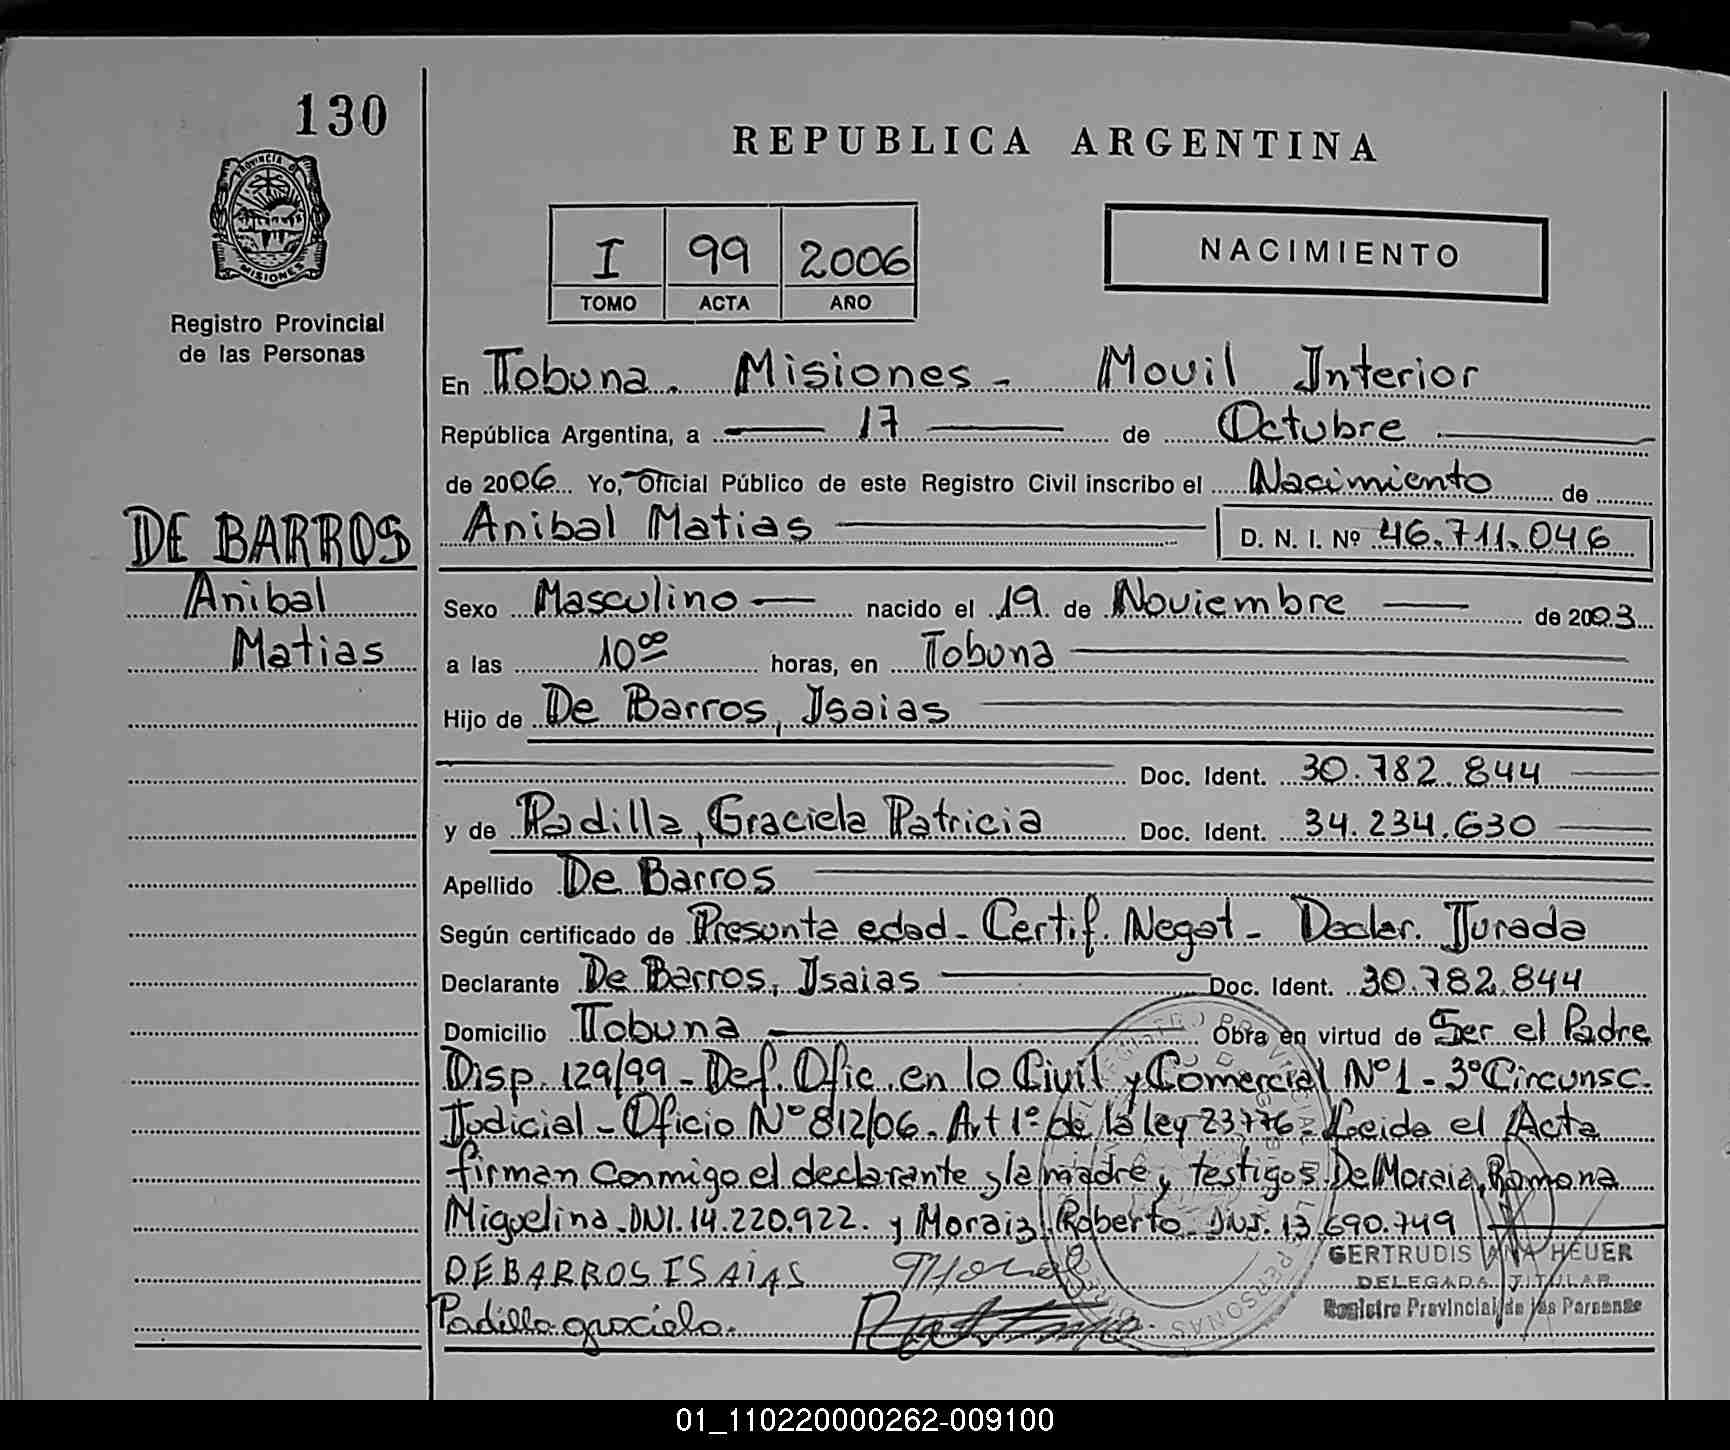 130
REPUBLICA ARGENTINA
PROVINCIA DE
MISIONES
Registro Provincial
de las Personas
I 99 2006
TOMO ACTA AÑO
NACIMIENTO
En Tobuna. Misiones - Movil Interior
República Argentina, a 17 de Octubre
de 2006 Yo, Oficial Público de este Registro Civil inscribo el Nacimiento de
DE BARROS
Anibal
Matias
Anibal Matias D. N. I. Nº 46.711.046
Sexo Masculino nacido el 19 de Noviembre de 2003
a las 10⁰⁰ horas, en Tobuna
Hijo de De Barros, Isaias
Doc. Ident. 30.782.844
y de Padilla, Graciela Patricia Doc. Ident. 34.234.630
Apellido De Barros
Según certificado de Presunta edad - Certif. Negat - Declar. Jurada
Declarante De Barros, Isaias Doc. Ident. 30.782.844
Domicilio Tobuna Obra en virtud de Ser el Padre
Disp. 129/99 - Def. Ofic. en lo Civil y Comercial Nº1 - 3º Circunsc.
Judicial - Oficio Nº 812/06. Art 1º de la ley 23776 - Leida el Acta
firman conmigo el declarante y la madre y testigos De Moraiz, Ramona
Miguelina. DNI. 14.220.922. y Moraiz Roberto DNI. 13.690.749
DE BARROS ISAIAS
Padilla graciela.
GERTRUDIS ANA HEUER
DELEGADA TITULAR
Registro Provincial de las Personas
01_110220000262-009100